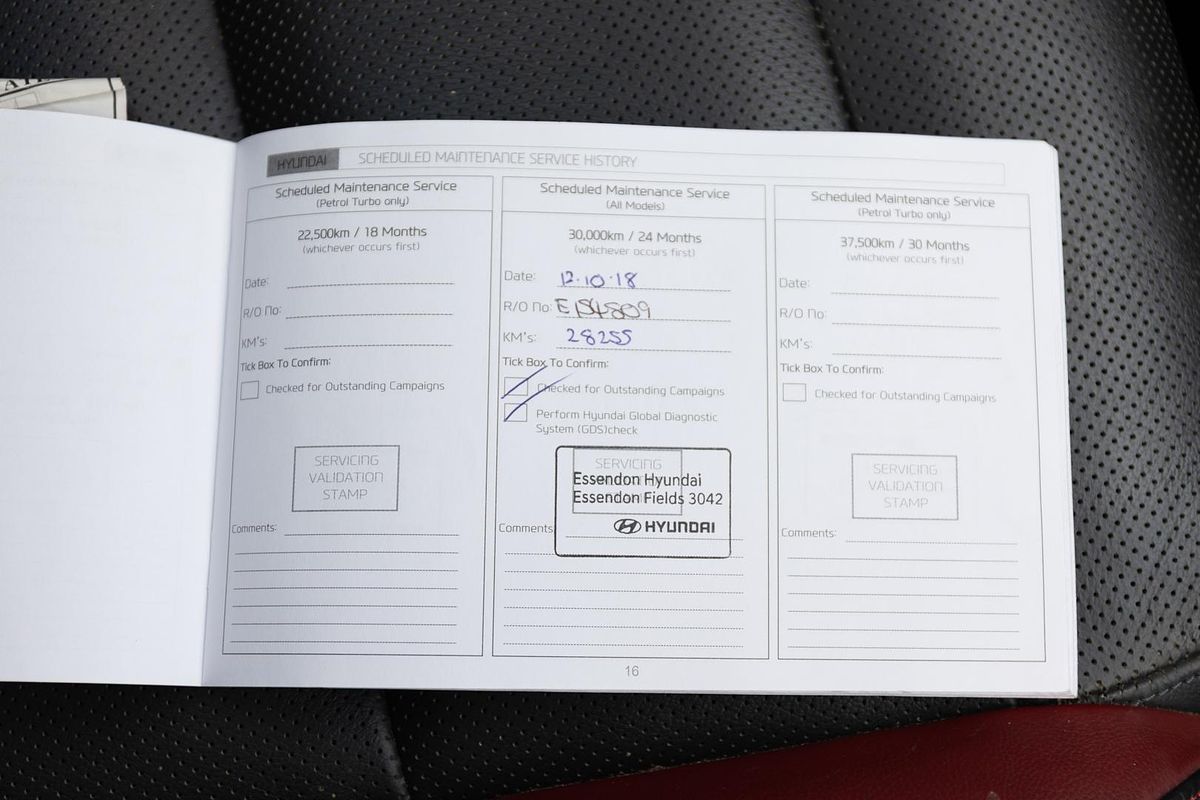 HYUNDAI SCHEDULED MAINTENANCE SERVICE HISTORY
Scheduled Maintenance Service
(Petrol Turbo only)
22,500km / 18 Months
(whichever occurs first)
Date:
R/O No:
KM's:
Tick Box To Confirm:
Checked for Outstanding Campaigns
SERVICING
VALIDATION
STAMP
Comments:
Scheduled Maintenance Service
(All Models)
30,000km / 24 Months
(whichever occurs first)
Date: 12.10.18
R/O No: E154809
KM's: 28255
Tick Box To Confirm:
Checked for Outstanding Campaigns
Perform Hyundai Global Diagnostic
System (GDS)check
SERVICING
Essendon Hyundai
Essendon Fields 3042
HYUNDAI
Comments
Scheduled Maintenance Service
(Petrol Turbo only)
37,500km / 30 Months
(whichever occurs first)
Date:
R/O No:
KM's:
Tick Box To Confirm:
Checked for Outstanding Campaigns
SERVICING
VALIDATION
STAMP
Comments:
16